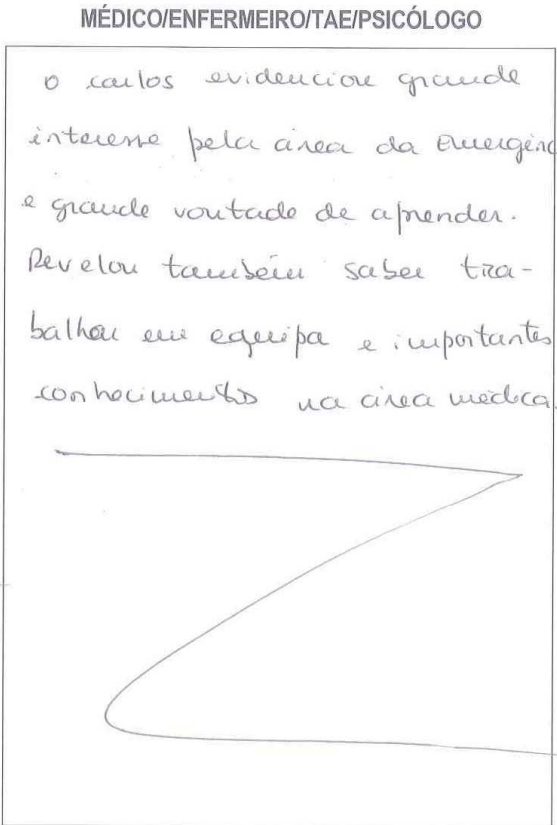 MÉDICO/ENFERMEIRO/TAE/PSICÓLOGO
O Carlos evidenciou grande
interesse pela área da Emergênc
e grande vontade de aprender.
Revelou também saber tra-
balhar em equipa e importantes
conhecimentos na área médica.